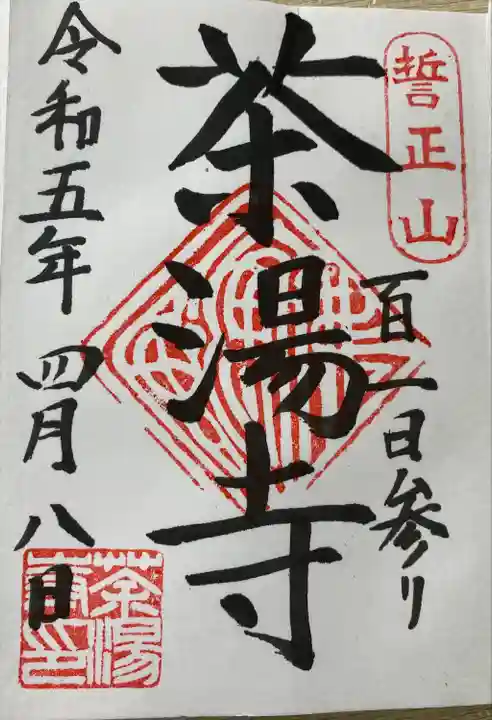 誓正山
百一日参り
茶湯寺
令和五年 四月八日
茶湯
寺印